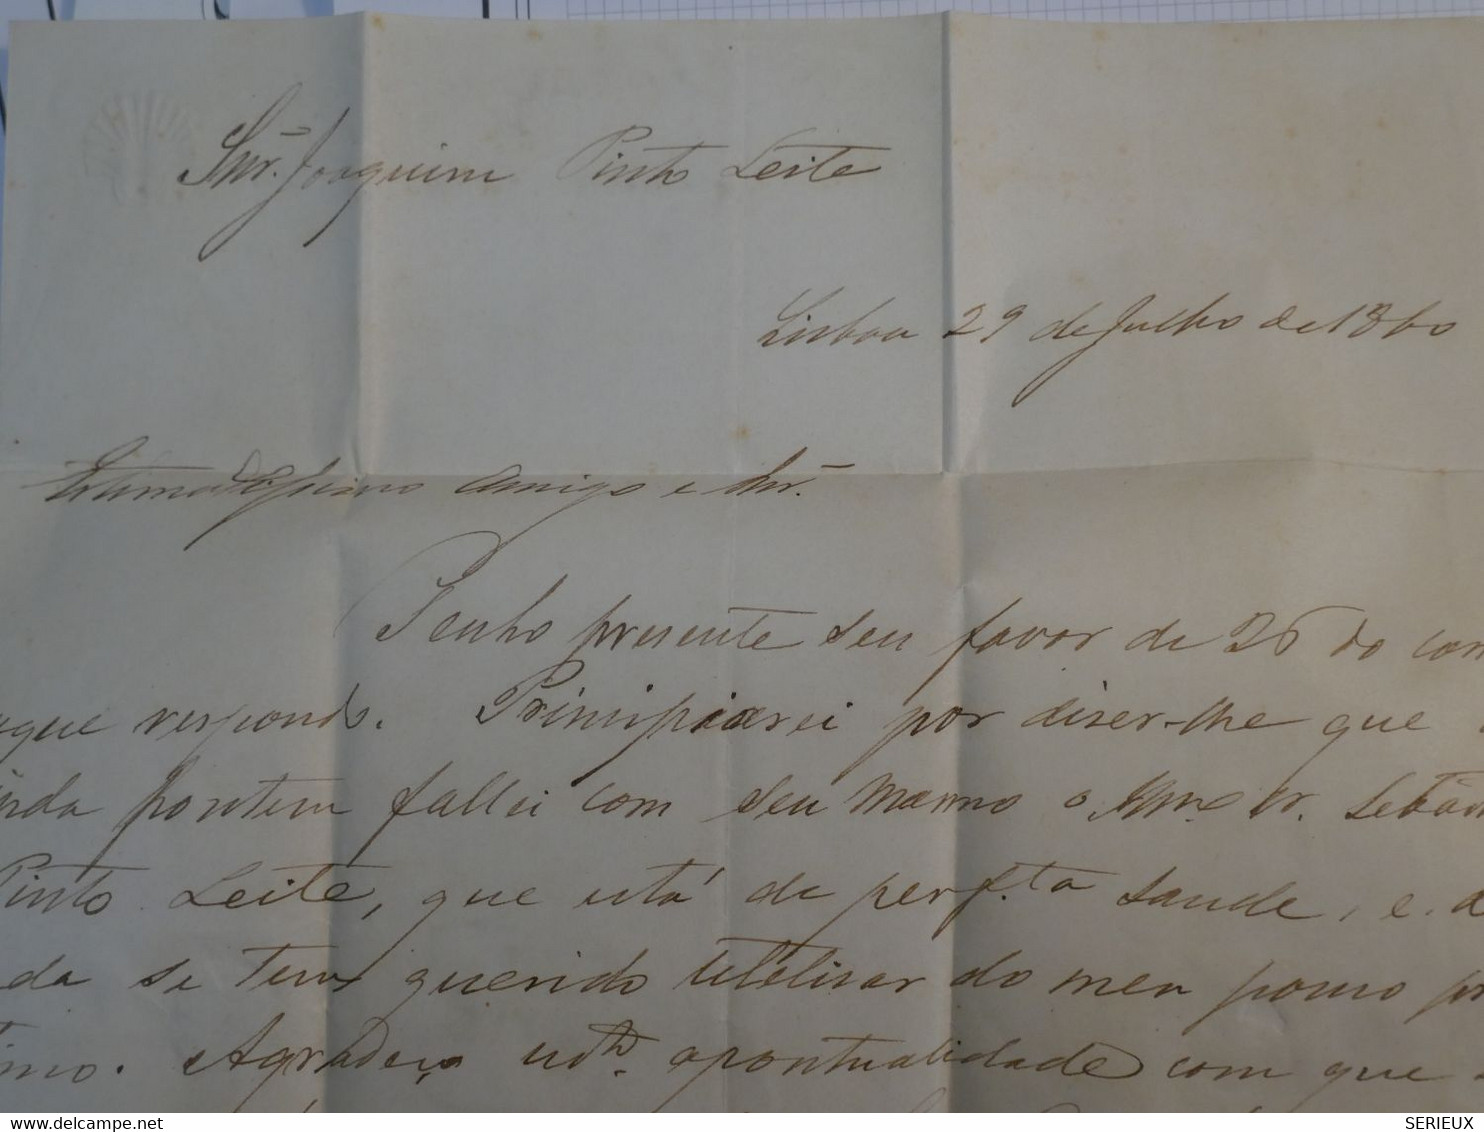 Snr. Joaquim Pinto Leite
Lisboa 29 de Julho de 1860
Amigo e Snr.
Tenho presente seu favor de 26 do corr
aque respondo. Principiarei por diser-lhe que
inda hontem fallei com seu Manno o Illmo Sr. Sebam
Pinto Leite, que está de perfta saude, e. de
da se tem querido utelisar do meu pouco pr
timo. Agradeço apontualidade com que
www.delcampe.net
SERIEUX